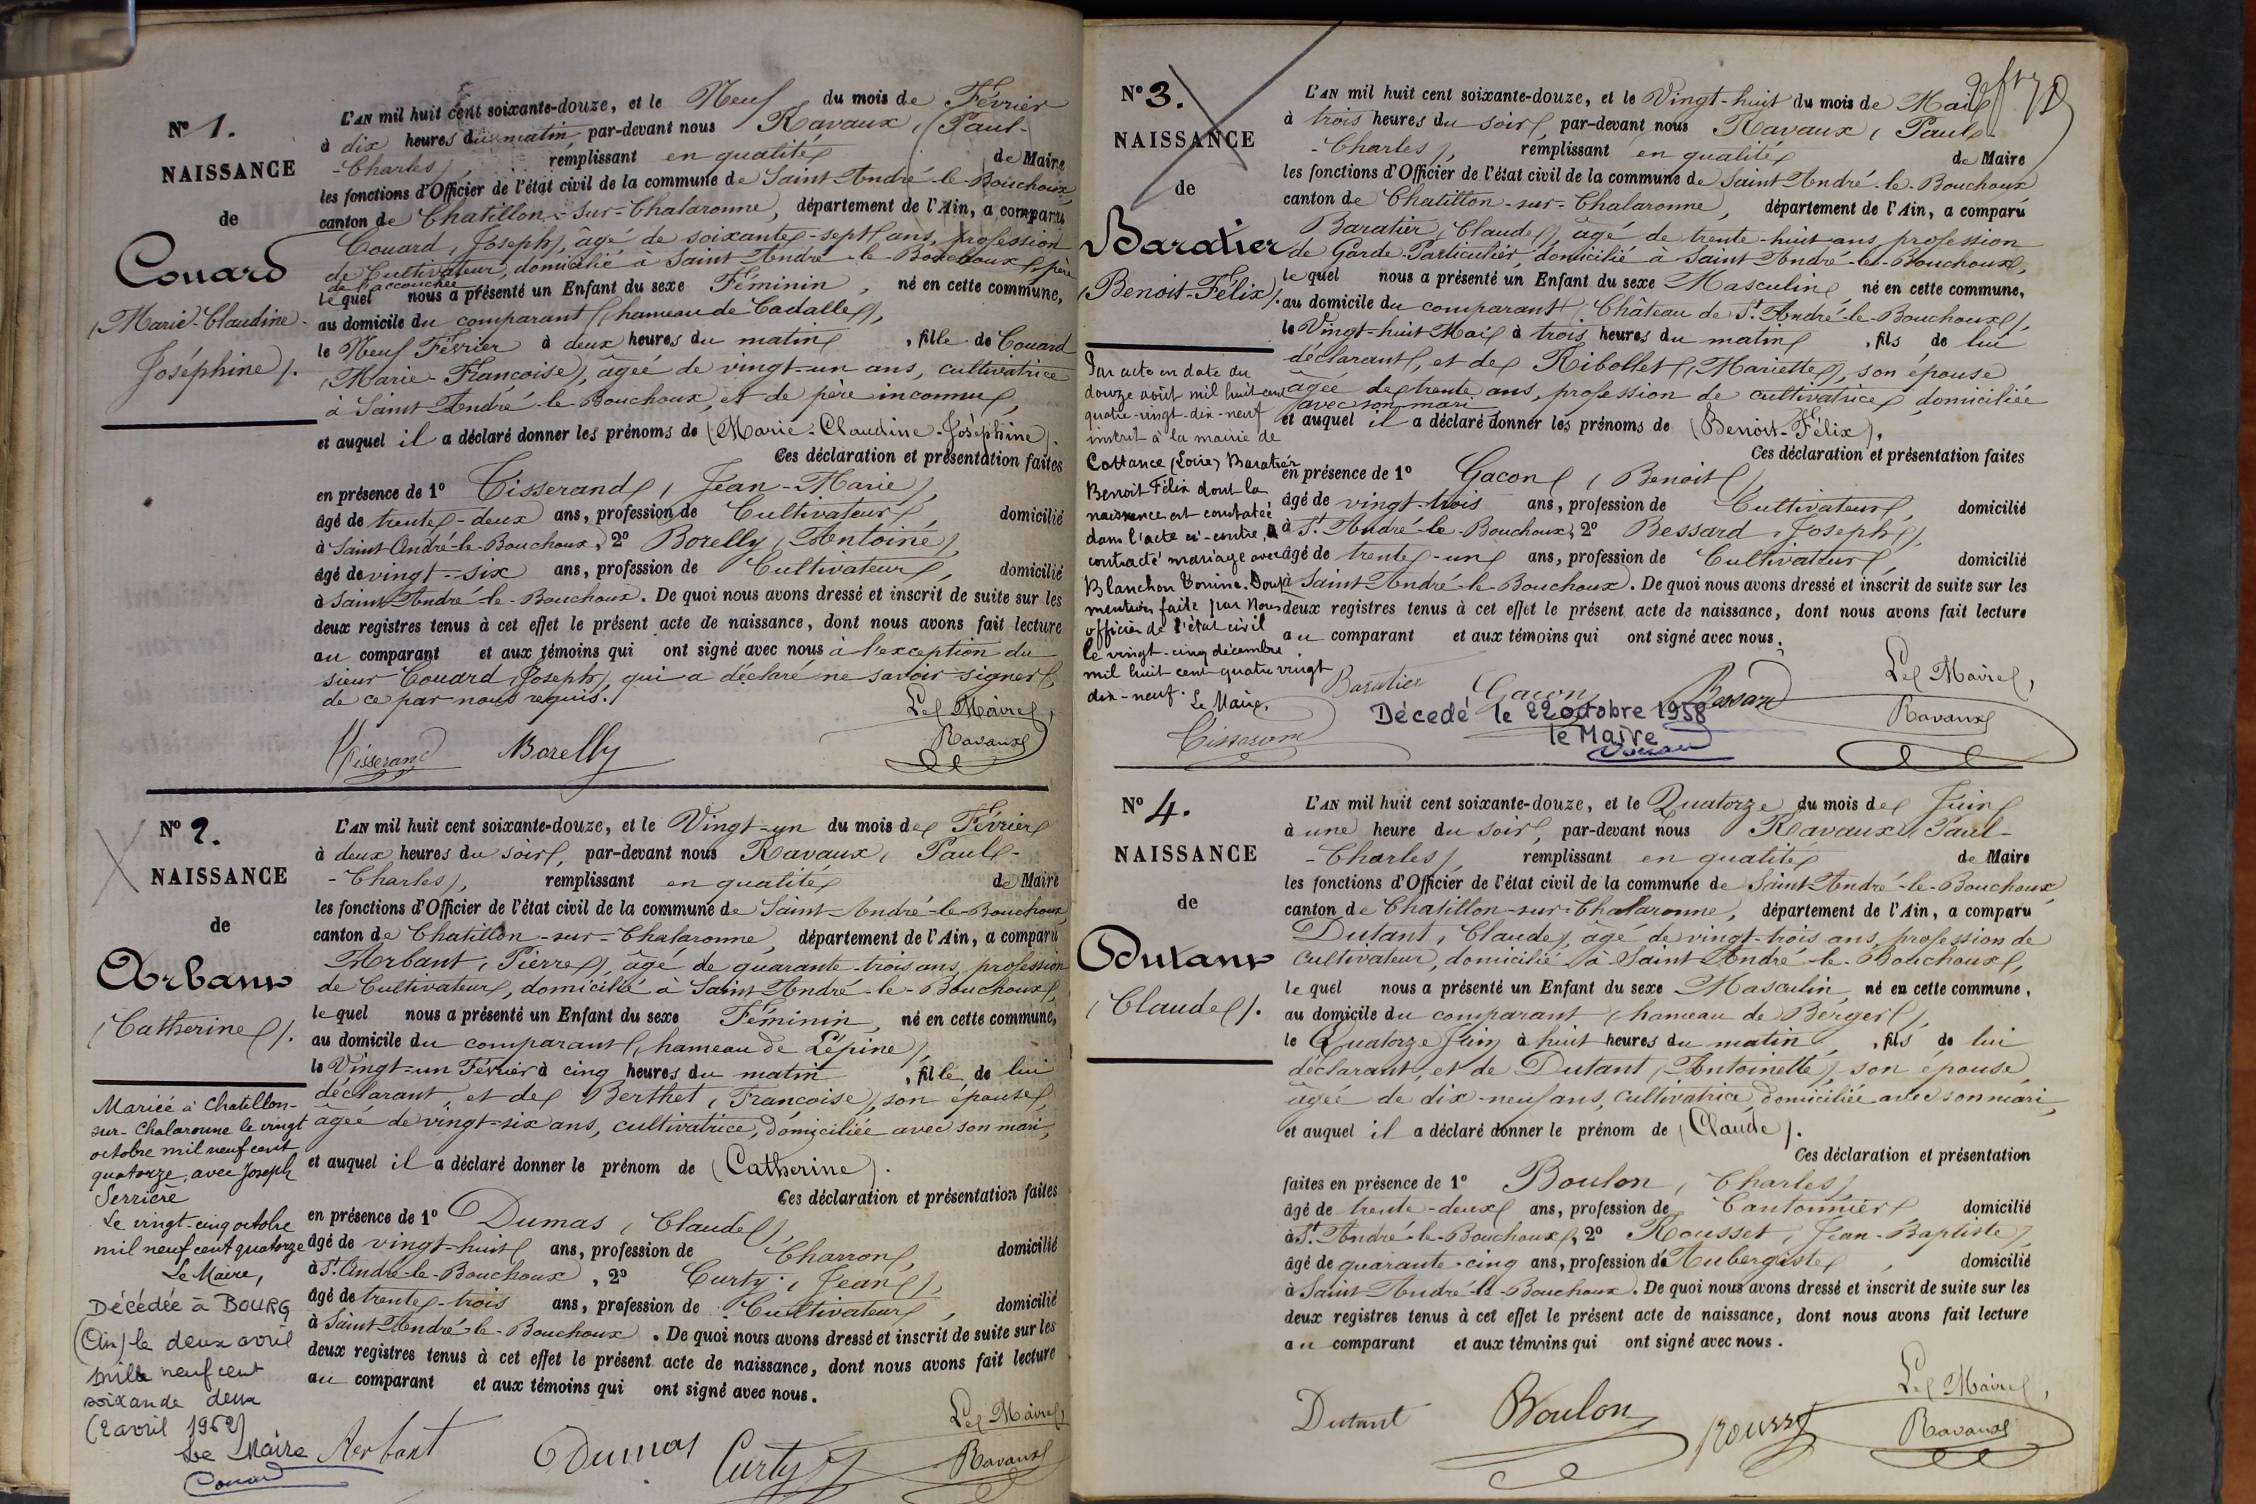 N° 1.
NAISSANCE
de
Couard
(Marie-Claudine-
Joséphine).
L'AN mil huit cent soixante-douze, et le Neuf du mois de Février
à dix heures du matin, par-devant nous Ravaux, (Paul-
-Charles), remplissant en qualité de Maire
les fonctions d'Officier de l'état civil de la commune de Saint-André-le-Bouchoux,
canton de Chatillon-sur-Chalaronne, département de l'Ain, a comparu
Couard, (Joseph), âgé de soixante-sept ans, profession
de Cultivateur, domicilié à Saint André-le-Bouchoux, père
de l'accouchée
lequel nous a présenté un Enfant du sexe Féminin, né en cette commune,
au domicile du comparant (hameau de Cadalles),
le Neuf Février à deux heures du matin, fille de Couard
(Marie-Françoise), âgée de vingt-un ans, cultivatrice
à Saint André-le-Bouchoux, et de père inconnu,
et auquel il a déclaré donner les prénoms de (Marie-Claudine-Joséphine).
Ces déclaration et présentation faites
en présence de 1° Tisserand, (Jean-Marie),
âgé de trente-deux ans, profession de Cultivateur, domicilié
à Saint-André-le-Bouchoux, 2° Borelly (Antoine),
âgé de vingt-six ans, profession de Cultivateur, domicilié
à Saint-André-le-Bouchoux. De quoi nous avons dressé et inscrit de suite sur les
deux registres tenus à cet effet le présent acte de naissance, dont nous avons fait lecture
au comparant et aux témoins qui ont signé avec nous à l'exception du
sieur Couard (Joseph) qui a déclaré ne savoir signer,
de ce par nous requis.
Le Maire,
Tisserand Borelly Ravaux
N° 2.
NAISSANCE
de
Arbant
(Catherine).
Mariée à Chatillon-
sur-Chalaronne le vingt
octobre mil neuf cent
quatorze, avec Joseph
Serrière
Le vingt-cinq octobre
mil neuf cent quatorze
Le Maire,
Décédée à BOURG
(Ain) le deux avril
mille neuf cent
soixande deux
(2 avril 1962)
Le Maire
Couard
L'AN mil huit cent soixante-douze, et le Vingt-un du mois de Février
à deux heures du soir, par-devant nous Ravaux, (Paul-
-Charles), remplissant en qualité de Maire
les fonctions d'Officier de l'état civil de la commune de Saint-André-le-Bouchoux,
canton de Chatillon-sur-Chalaronne, département de l'Ain, a comparu
Arbant, (Pierre), âgé de quarante-trois ans, profession
de Cultivateur, domicilié à Saint André-le-Bouchoux,
lequel nous a présenté un Enfant du sexe Féminin, né en cette commune,
au domicile du comparant (hameau de Lépine),
le Vingt-un Février à cinq heures du matin, fille de lui
déclarant, et de Berthet, (Françoise), son épouse,
âgée de vingt-six ans, cultivatrice, domiciliée avec son mari,
et auquel il a déclaré donner le prénom de (Catherine).
Ces déclaration et présentation faites
en présence de 1° Dumas, (Claude),
âgé de vingt-huit ans, profession de Charron, domicilié
à St. André-le-Bouchoux, 2° Curty, (Jean),
âgé de trente-trois ans, profession de Cultivateur, domicilié
à Saint André-le-Bouchoux. De quoi nous avons dressé et inscrit de suite sur les
deux registres tenus à cet effet le présent acte de naissance, dont nous avons fait lecture
au comparant et aux témoins qui ont signé avec nous.
Le Maire,
Arbant Dumas Curty Ravaux
N° 3.
NAISSANCE
de
Baratier
(Benoit-Félix).
Par acte en date du
douze août mil huit cent
quatre-vingt-dix-neuf
inscrit à la mairie de
Cottance (Loire) Baratier
Benoit Félix dont la
naissance est constatée
dans l'acte ci-contre, a
contracté mariage avec
Blanchon Tonine. Dont
mention faite par Nous
officier de l'état civil
le vingt-cinq décembre
mil huit cent quatre vingt
dix-neuf. Le Maire,
Tisserand
L'AN mil huit cent soixante-douze, et le Vingt-huit du mois de Mai
à trois heures du soir, par-devant nous Ravaux, (Paul-
-Charles), remplissant en qualité de Maire
les fonctions d'Officier de l'état civil de la commune de Saint-André-le-Bouchoux
canton de Chatillon-sur-Chalaronne, département de l'Ain, a comparu
Baratier, (Claude), âgé de trente-huit ans, profession
de Garde-Particulier, domicilié à Saint André-le-Bouchoux,
lequel nous a présenté un Enfant du sexe Masculin, né en cette commune,
au domicile du comparant (Château de St. André-le-Bouchoux),
le Vingt-huit Mai à trois heures du matin, fils de lui
déclarant, et de Ribollet, (Mariette), son épouse
âgée de trente ans, profession de cultivatrice, domiciliée
avec son mari
et auquel il a déclaré donner les prénoms de (Benoit-Félix).
Ces déclaration et présentation faites
en présence de 1° Gacon, (Benoit),
âgé de vingt-trois ans, profession de Cultivateur, domicilié
à St. André-le-Bouchoux, 2° Bessard, (Joseph),
âgé de trente-un ans, profession de Cultivateur, domicilié
à Saint-André-le-Bouchoux. De quoi nous avons dressé et inscrit de suite sur les
deux registres tenus à cet effet le présent acte de naissance, dont nous avons fait lecture
au comparant et aux témoins qui ont signé avec nous.
Le Maire,
Baratier Gacon Bessard Ravaux
Décedé le 22 octobre 1958
le Maire
N° 4.
NAISSANCE
de
Dutant
(Claude).
L'AN mil huit cent soixante-douze, et le Quatorze du mois de Juin
à une heure du soir, par-devant nous Ravaux, (Paul-
-Charles), remplissant en qualité de Maire
les fonctions d'Officier de l'état civil de la commune de Saint-André-le-Bouchoux
canton de Chatillon-sur-Chalaronne, département de l'Ain, a comparu
Dutant, (Claude), âgé de vingt-trois ans, profession de
Cultivateur, domicilié à Saint-André-le-Bouchoux,
lequel nous a présenté un Enfant du sexe Masculin, né en cette commune,
au domicile du comparant (hameau de Berger),
le Quatorze Juin à huit heures du matin, fils de lui
déclarant, et de Dutant, (Antoinette), son épouse
âgée de dix-neuf ans, cultivatrice, domiciliée avec son mari,
et auquel il a déclaré donner le prénom de (Claude).
Ces déclaration et présentation
faites en présence de 1° Boulon, (Charles),
âgé de trente-deux ans, profession de Cantonnier, domicilié
à St. André-le-Bouchoux, 2° Rousset, (Jean-Baptiste),
âgé de quarante-cinq ans, profession d'Aubergiste, domicilié
à Saint André-le-Bouchoux. De quoi nous avons dressé et inscrit de suite sur les
deux registres tenus à cet effet le présent acte de naissance, dont nous avons fait lecture
au comparant et aux témoins qui ont signé avec nous.
Le Maire,
Dutant Boulon Rousset Ravaux